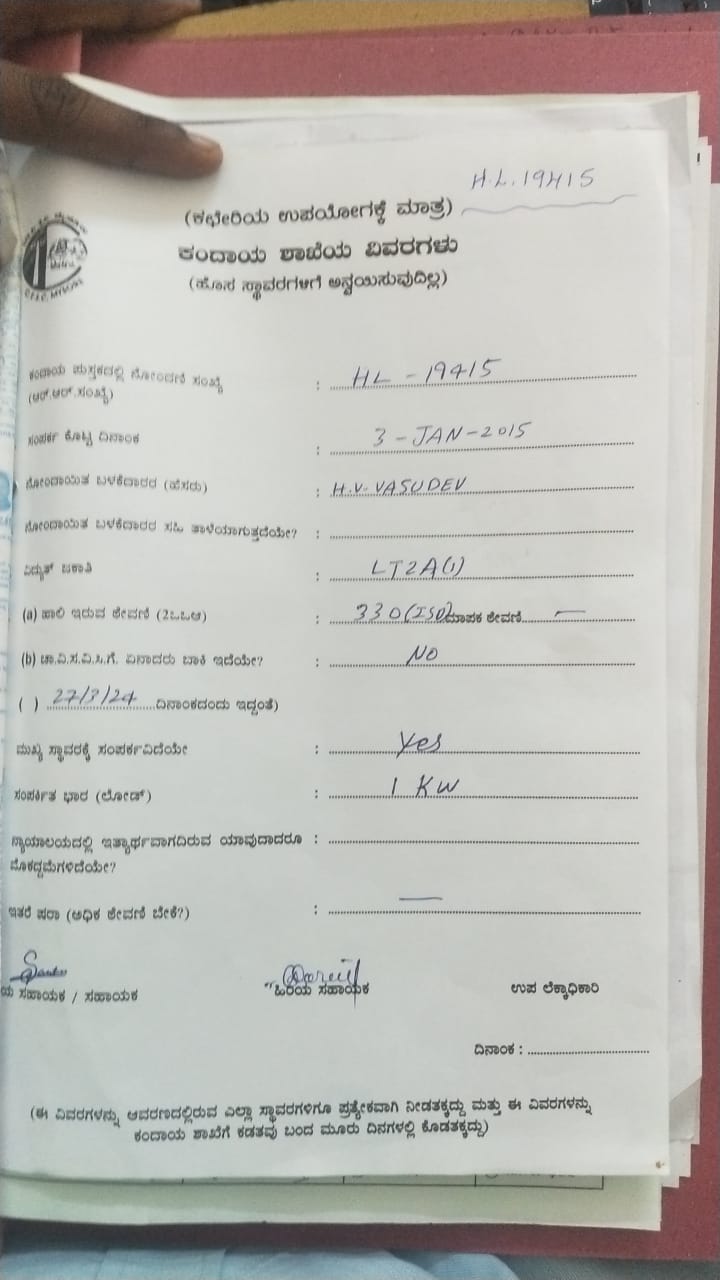 H.L. 19415
(ಕಛೇರಿಯ ಉಪಯೋಗಕ್ಕೆ ಮಾತ್ರ)
ಕಂದಾಯ ಶಾಖೆಯ ವಿವರಗಳು
(ಹೊಸ ಸ್ಥಾವರಗಳಿಗೆ ಅನ್ವಯಿಸುವುದಿಲ್ಲ)
ಕಂದಾಯ ಪುಸ್ತಕದಲ್ಲಿ ನೋಂದಣಿ ಸಂಖ್ಯೆ : HL - 19415
(ಆರ್.ಆರ್.ಸಂಖ್ಯೆ)
ಸಂಪರ್ಕ ಕೊಟ್ಟ ದಿನಾಂಕ : 3 - JAN - 2015
ನೋಂದಾಯಿತ ಬಳಕೆದಾರರ (ಹೆಸರು) : H.V. VASUDEV
ನೋಂದಾಯಿತ ಬಳಕೆದಾರರ ಸಹಿ ತಾಳೆಯಾಗುತ್ತದೆಯೇ? :
ವಿದ್ಯುತ್ ಜಕಾತಿ : LT2A(1)
(a) ಹಾಲಿ ಇರುವ ಠೇವಣಿ (2ಒಒಆ) : 330 (ISD) ಮಾಪಕ ಠೇವಣಿ —
(b) ಚಾ.ವಿ.ಸ.ವಿ.ಸಿ.ಗೆ. ಏನಾದರು ಬಾಕಿ ಇದೆಯೇ? : NO
( ) 27/3/24 ದಿನಾಂಕದಂದು ಇದ್ದಂತೆ)
ಮುಖ್ಯ ಸ್ಥಾವರಕ್ಕೆ ಸಂಪರ್ಕವಿದೆಯೇ : Yes
ಸಂಪರ್ಕಿತ ಭಾರ (ಲೋಡ್) : 1 KW
ನ್ಯಾಯಾಲಯದಲ್ಲಿ ಇತ್ಯಾರ್ಥವಾಗದಿರುವ ಯಾವುದಾದರೂ :
ಮೊಕದ್ದಮೆಗಳಿದೆಯೇ?
ಇತರೆ ಷರಾ (ಅಧಿಕ ಠೇವಣಿ ಬೇಕೆ?) : —
ಯ ಸಹಾಯಕ / ಸಹಾಯಕ ಹಿರಿಯ ಸಹಾಯಕ ಉಪ ಲೆಕ್ಕಾಧಿಕಾರಿ
ದಿನಾಂಕ :
(ಈ ವಿವರಗಳನ್ನು ಆವರಣದಲ್ಲಿರುವ ಎಲ್ಲಾ ಸ್ಥಾವರಗಳಿಗೂ ಪ್ರತ್ಯೇಕವಾಗಿ ನೀಡತಕ್ಕದ್ದು ಮತ್ತು ಈ ವಿವರಗಳನ್ನು
ಕಂದಾಯ ಶಾಖೆಗೆ ಕಡತವು ಬಂದ ಮೂರು ದಿನಗಳಲ್ಲಿ ಕೊಡತಕ್ಕದ್ದು)